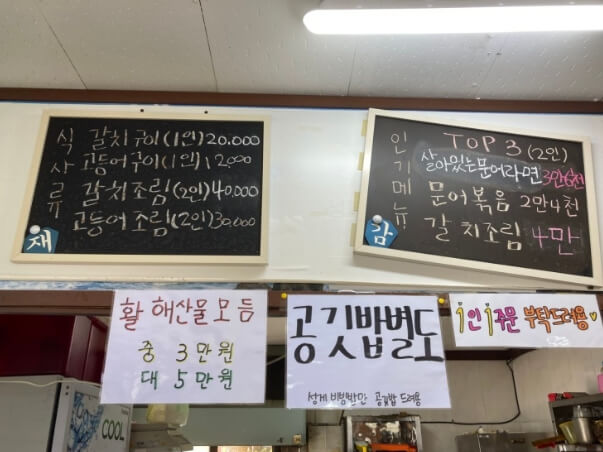 식사류
갈치구이(1인) 20.000
고등어구이(1인) 12000
갈치조림(2인) 40.000
고등어조림(2인) 30,000
재
인기메뉴
TOP 3 (2인)
살아있는문어라면 3만6천
문어볶음 2만4천
갈치조림 4만
감
활 해산물모듬
중 3만원
대 5만원
공깃밥별도
성게 비빔밥만 공깃밥 드려용
1인1주문 부탁드려용♥
COOL